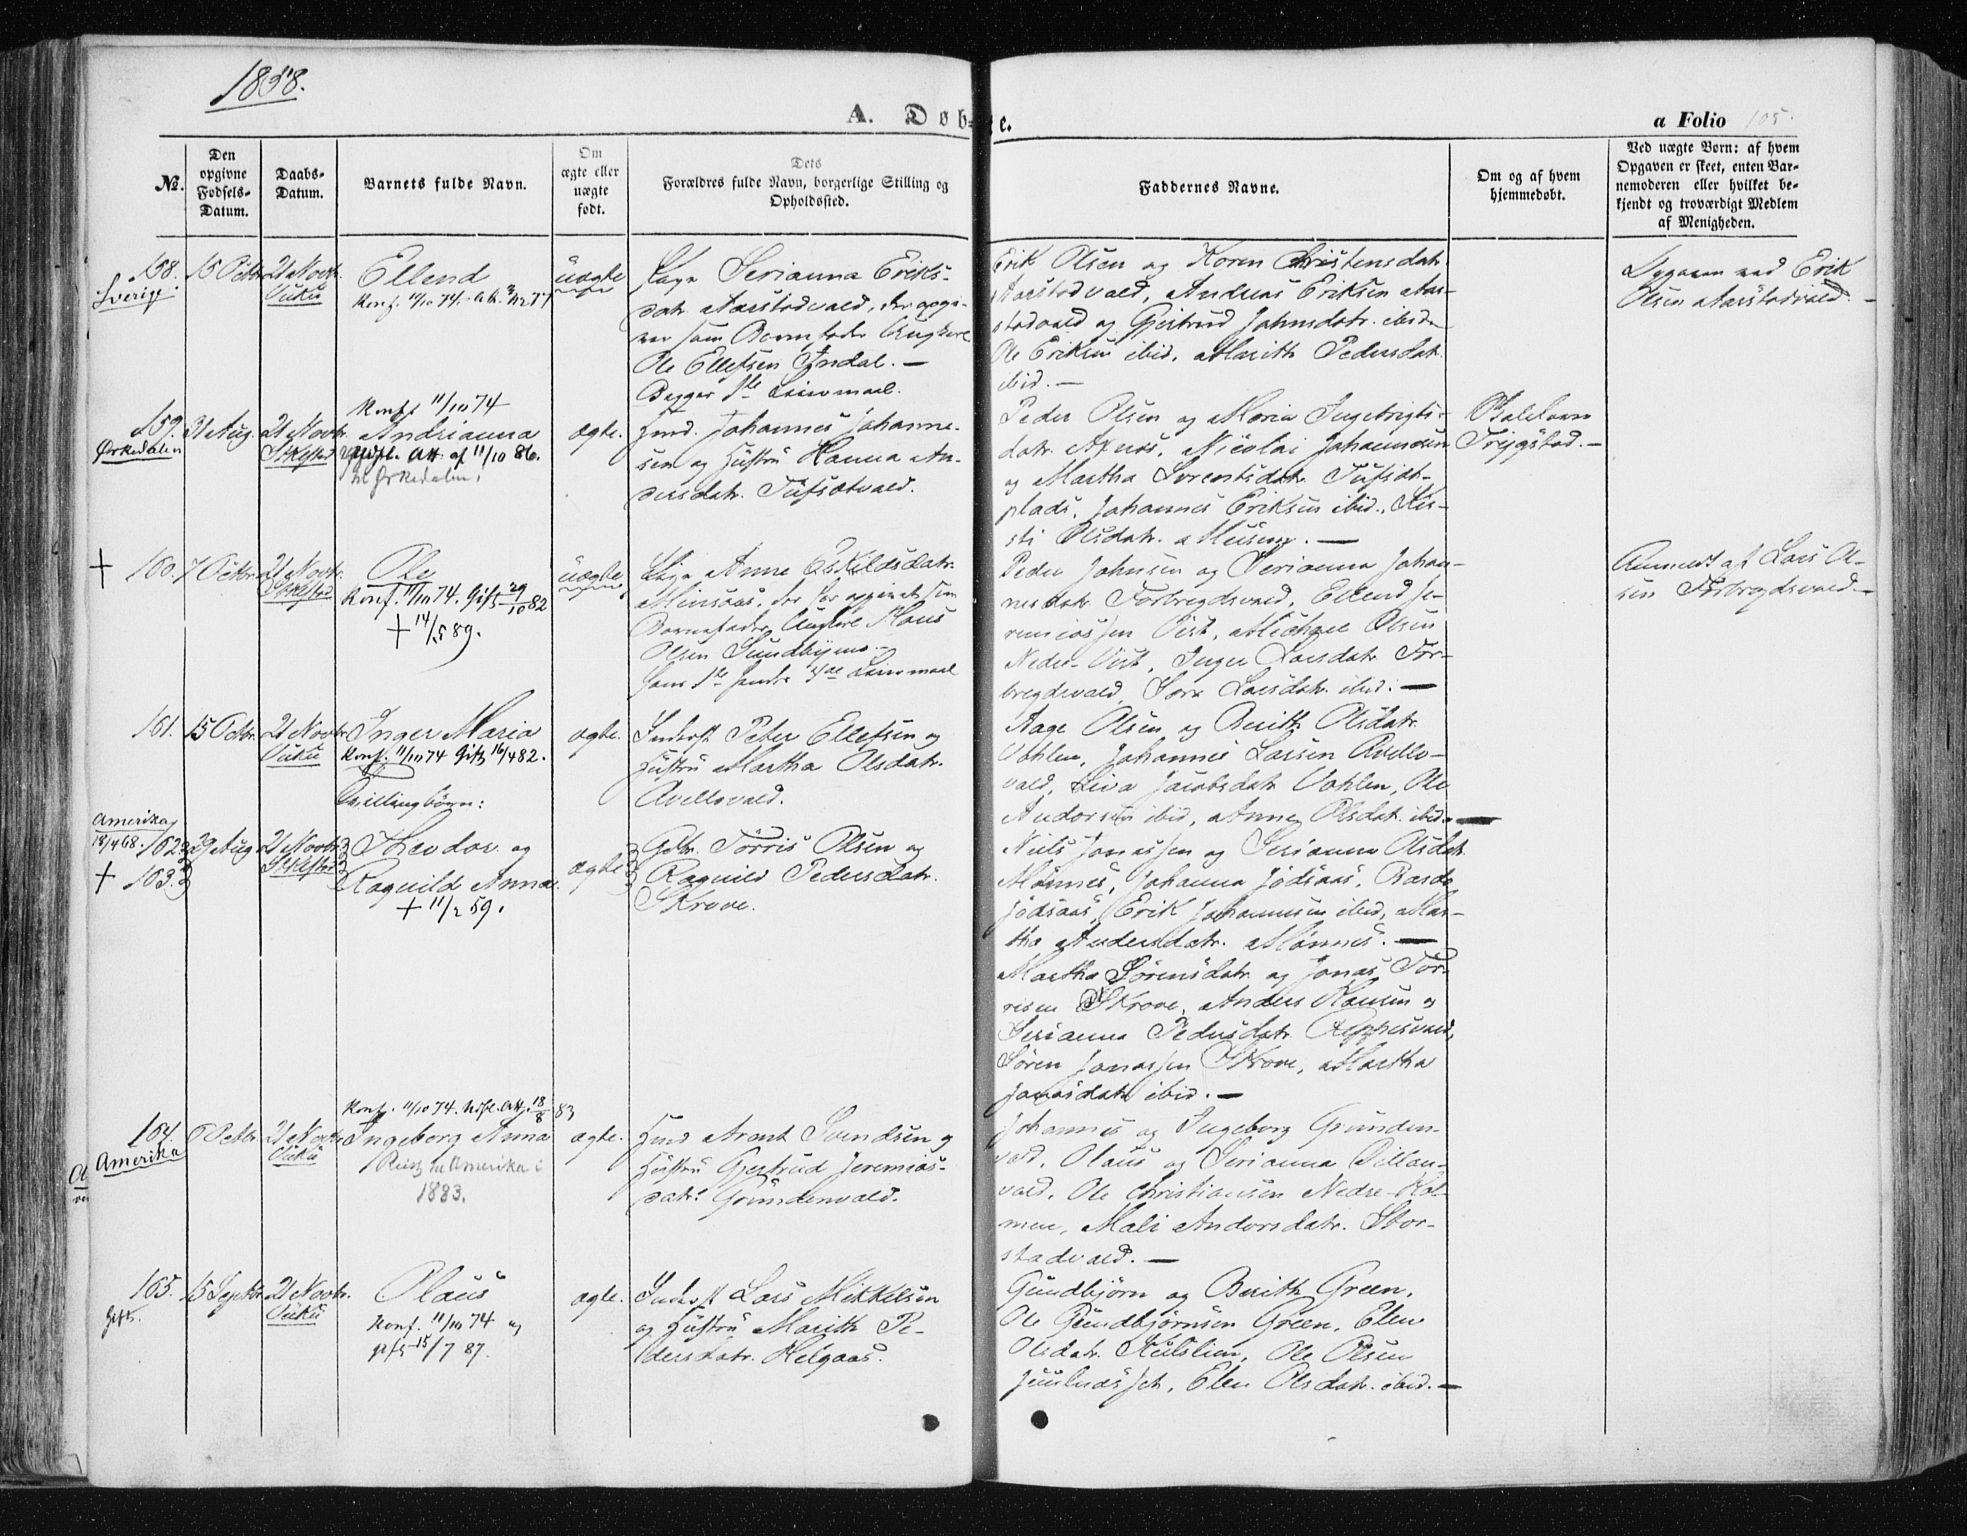 1858.
A. Døbte.
a Folio 105.
№.
Den opgivne Fødsels-Datum.
Daabs-Datum.
Barnets fulde Navn.
Om ægte eller uægte født.
Dets Forældres fulde Navn, borgerlige Stilling og Opholdssted.
Faddernes Navne.
Om og af hvem hjemmedøbt.
Ved uægte Børn: af hvem Opgaven er skeet, enten Barnemoderen eller hvilket bekjendt og troværdigt Medlem af Menigheden.
158.
Sverige.
15 Octbr.
21 Novbr.
Vuku
Ellend
Konf. 11/10 74.
uægte
Pige Serianna Eriks-
datr. Aarstadvald,
som Barnefader Ungkarl
Ole Ellefsen Indal. —
Begges 1te Leiermaal.
Erik Olsen og Karen Christensdatr.
Aarstadvald, Andreas Eriksen Aar-
stadvald og Gjertrud Johnsdatr. ibid.
Ole Eriksen ibid, Marith Pedersdatr.
ibid. —
Opgaven ved Erik
Olsen Aarstadvald. —
159.
Ørkedalen
31 Aug.
21 Novbr.
Stiklestad
Konf. 11/10 74
Andrianna
Att. af 11/10 86.
til Ørkedalen.
ægte.
Huusmd. Johannes Johanne-
sen og Hustru Hanna An-
dersdatr. Tufsetvald.
Peder Olsen og Maria Ingebrigts-
datr. Axnæs, Nicolai Johannesen
og Martha Lorentsdatr. Tufset-
plads, Johannes Eriksen ibid., Kir-
sti Olsdatr. —
Trygstad. —
+ 160.
7 Octbr.
21 Novbr.
Stiklestad
Ole
Konf. 11/10 74. Gift 29/10 82
+ 14/5 89.
uægte
Pige Anne Eskildsdatr.
Minsaas, der har opgivet som
Barnefader Ungkarl Claus
Olsen Sundbymo. —
hans 1te hendes Leiermaal
Peder Johnsen og Serianna Johan-
nesdatr. Forbregdsvald, Ellend Je-
remiassen Vist, Michael Olsen
Nedre-Vist, Inger Larsdatr. For-
bregdsvald, Sara Larsdatr. ibid. —
Anmeldt af Lars Ol-
sen Forbregdsvald. —
161.
15 Octbr.
21 Novbr.
Vuku
Inger Maria
Konf. 11/10 74 Gift 16/4 82.
ægte.
Inderst Peter Ellefsen og
Hustru Martha Olsdatr.
Avellovald.
Aage Olsen og Berith Olsdatr.
Vohlen, Johannes Larsen Avello-
vald, Jacobsdatr. Vohlen, Ole
Andorsen ibid, Anne Olsdatr. ibid. —
Tvillingbørn:
Amerika
18/4 68. 162.
+ 163.
29 Aug.
21 Novbr.
Stiklestad
Theodor og
Ragnild Anna
+ 11/2 59.
ægte
Gbr. Tørris Olsen og
Ragnild Pedersdatr.
Skrove.
Niels Jonassen og Serianna Olsdatr.
Mønnes, Johanna Jødsaas, Baade
Jødsaas, Erik Johannesen ibid, Mar-
tha Andersdatr. Mønnes. —
Martha Sørensdatr. og Jonas Tør-
risen Skrove, Anders Hansen og
Serianna Pedersdatr. Reppesvald,
Søren Jonassen Skrove, Martha
Jonasdatr. ibid. —
164.
Amerika
6 Octbr.
21 Novbr.
Vuku
Konf. 11/10 74. Udfl. Att. 18/8 83
Ingeborg Anna
Reist til Amerika i
1883.
ægte.
Huusmd Arent Svendsen og
Hustru Gjertrud Jeremias-
datr. Grundenvald.
Johannes og Ingeborg Grunden-
vald, Olaus og Serianna
vald, Ole Christiansen Nedre-Hol-
men, Mali Andorsdatr. Stor-
stadvald. —
165.
Gift.
15 Septbr.
21 Novbr.
Vuku
Olaus
Konf. 11/10 74 og
gift 15/7 87.
ægte.
Inderst Lars Mikkelsen
og Hustru Marith Pe-
dersdatr. Helgaas.
Gundbjørn og Berith Green,
Ole Gundbjørnsen Green, Elen
Olsdatr. Kulslien, Ole Olsen
Juulnæsset, Elen Olsdatr. ibid. —